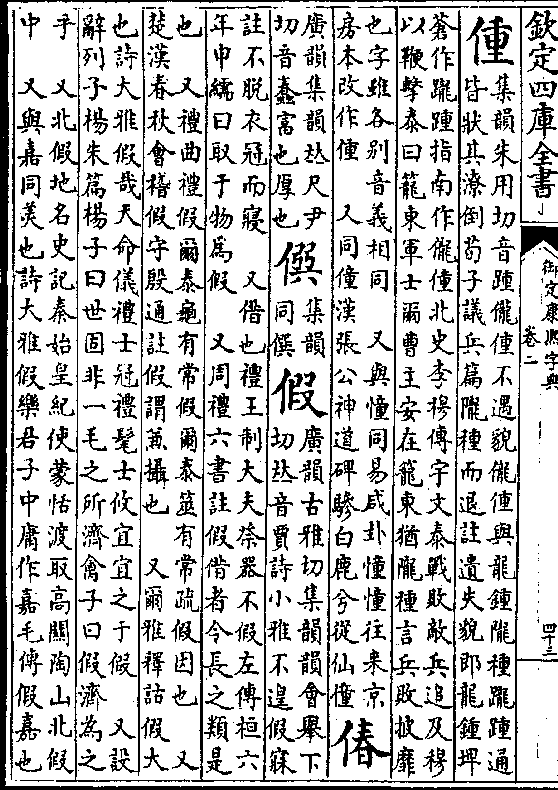 欽定四庫全書
御定康熙字典
卷二
四十三
偅
集韻朱用切音踵儱偅不遇貌儱偅與龍鍾隴種躘踵通
皆狀其潦倒荀子議兵篇隴種而退註遺失貌即龍鍾埤
蒼作躘踵指南作儱偅北史李穆傳宇文泰戰敗敵兵追及穆
以鞭擊泰曰籠東軍士爾曹主安在籠東猶隴種言兵敗披靡
也字雖各別音義相同　又與憧同易咸卦憧憧往來京
房本改作偅　又同僮漢張公神道碑驂白鹿兮從仙僮
偆
廣韻集韻𠀤尺尹
切音蠢富也厚也
集韻
同僎
假
廣韻古雅切集韻韻會舉下
切𠀤音賈詩小雅不遑假寐
註不脫衣冠而寢　又借也禮王制大夫祭器不假左傳桓六
年申繻曰取于物爲假　又周禮六書註假借者令長之類是
也　又禮曲禮假爾泰龜有常假爾泰筮有常疏假因也　又
楚漢春秋會稽假守殷通註假謂兼攝也　又爾雅釋詁假大
也詩大雅假哉天命儀禮士冠禮髦士攸宜宜之于假　又設
辭列子楊朱篇楊子曰世固非一毛之所濟禽子曰假濟為之
乎　又北假地名史記秦始皇紀使蒙恬渡取高闕陶山北假
中　又與嘉同美也詩大雅假樂君子中庸作嘉毛傳假嘉也